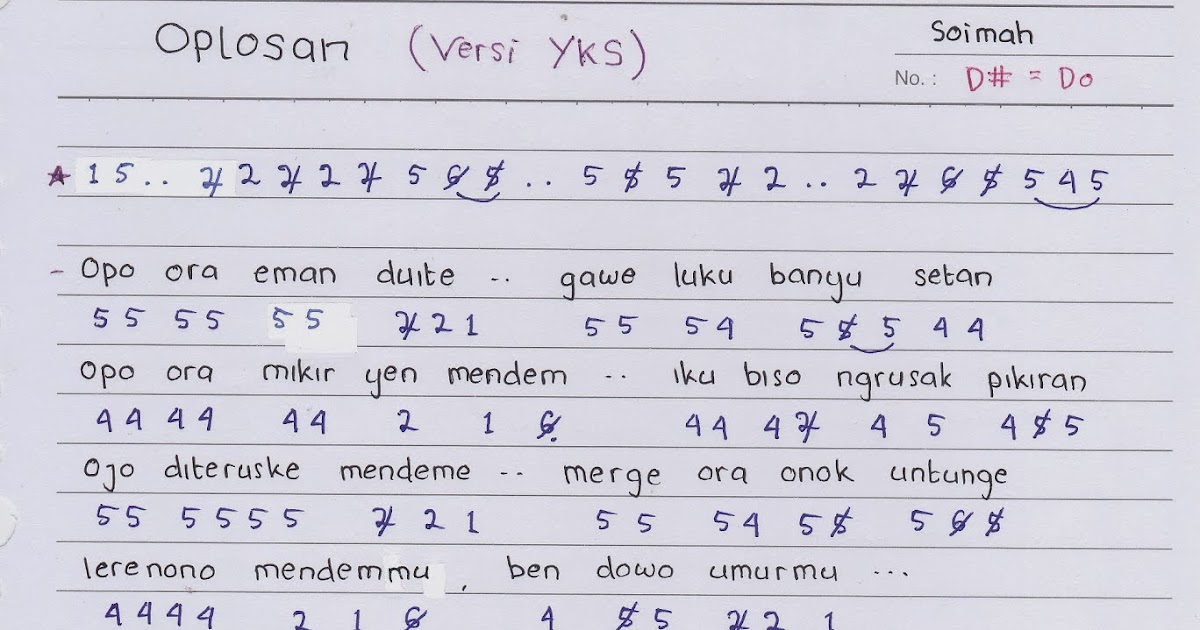 Oplosan (Versi YKS)
Soimah
No. : D# = Do
★ 1 5 .. 2̸ 2 2̸ 2 2̸ 5 6̸ 5̸ .. 5 5̸ 5 2̸ 2 .. 2 2̸ 6̸ 5̸ 5 4 5
- Opo ora eman duite .. gawe luku banyu setan
5 5 5 5 5 5 2̸ 2 1 5 5 5 4 5 5̸ 5 4 4
Opo ora mikir yen mendem .. iku biso ngrusak pikiran
4 4 4 4 4 4 2 1 6̸. 4 4 4 2̸ 4 5 4 5̸ 5
Ojo diteruske mendeme .. merge ora onok untunge
5 5 5 5 5 5 2̸ 2 1 5 5 5 4 5 5̸ 5 6̸ 5̸
lerenono mendemmu, ben dowo umurmu ...
4 4 4 4 2 1 6̸ 4 5̸ 5 2̸ 2 1